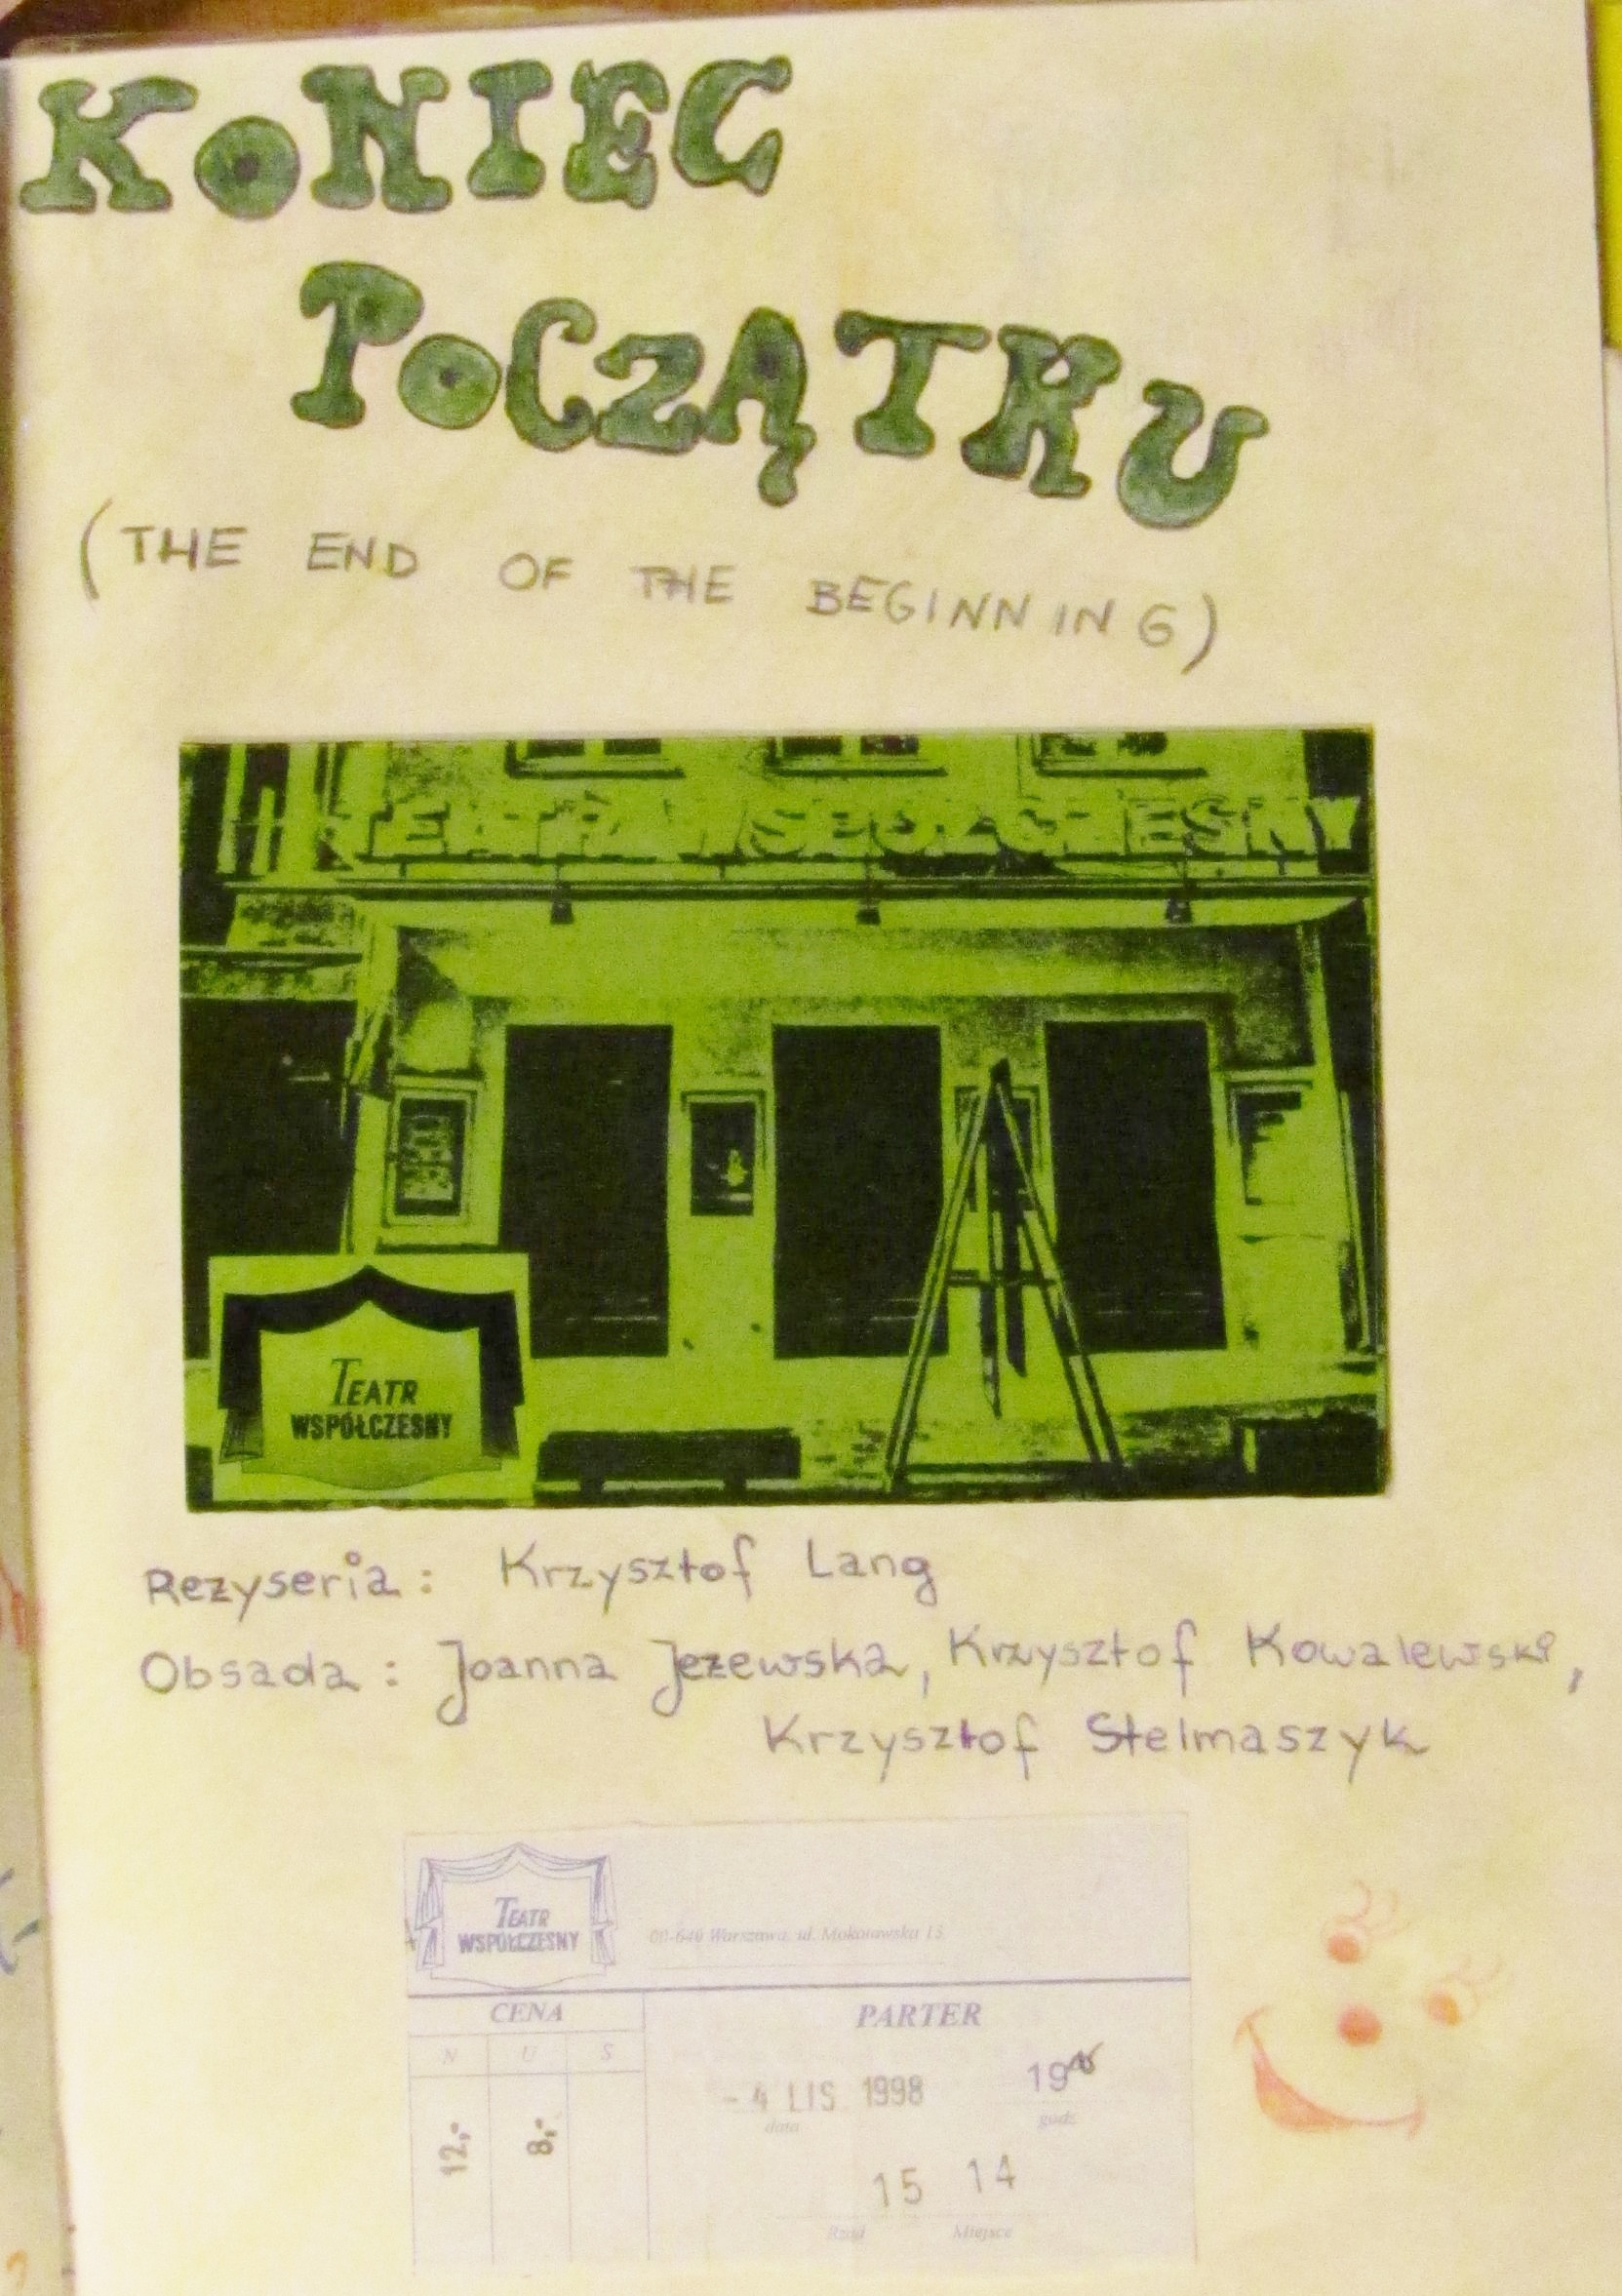 KONIEC
POCZĄTKU
(THE END OF THE BEGINNING)
TEATR WSPÓŁCZESNY
TEATR
WSPÓŁCZESNY
Reżyseria: Krzysztof Lang
Obsada: Joanna Jeżewska, Krzysztof Kowalewski,
Krzysztof Stelmaszyk
TEATR
WSPÓŁCZESNY
00-640 Warszawa, ul. Mokotowska 13
CENA
PARTER
N U S
- 4 LIS. 1998 19
data godz
12,- 8,-
15 14
Rząd Miejsce